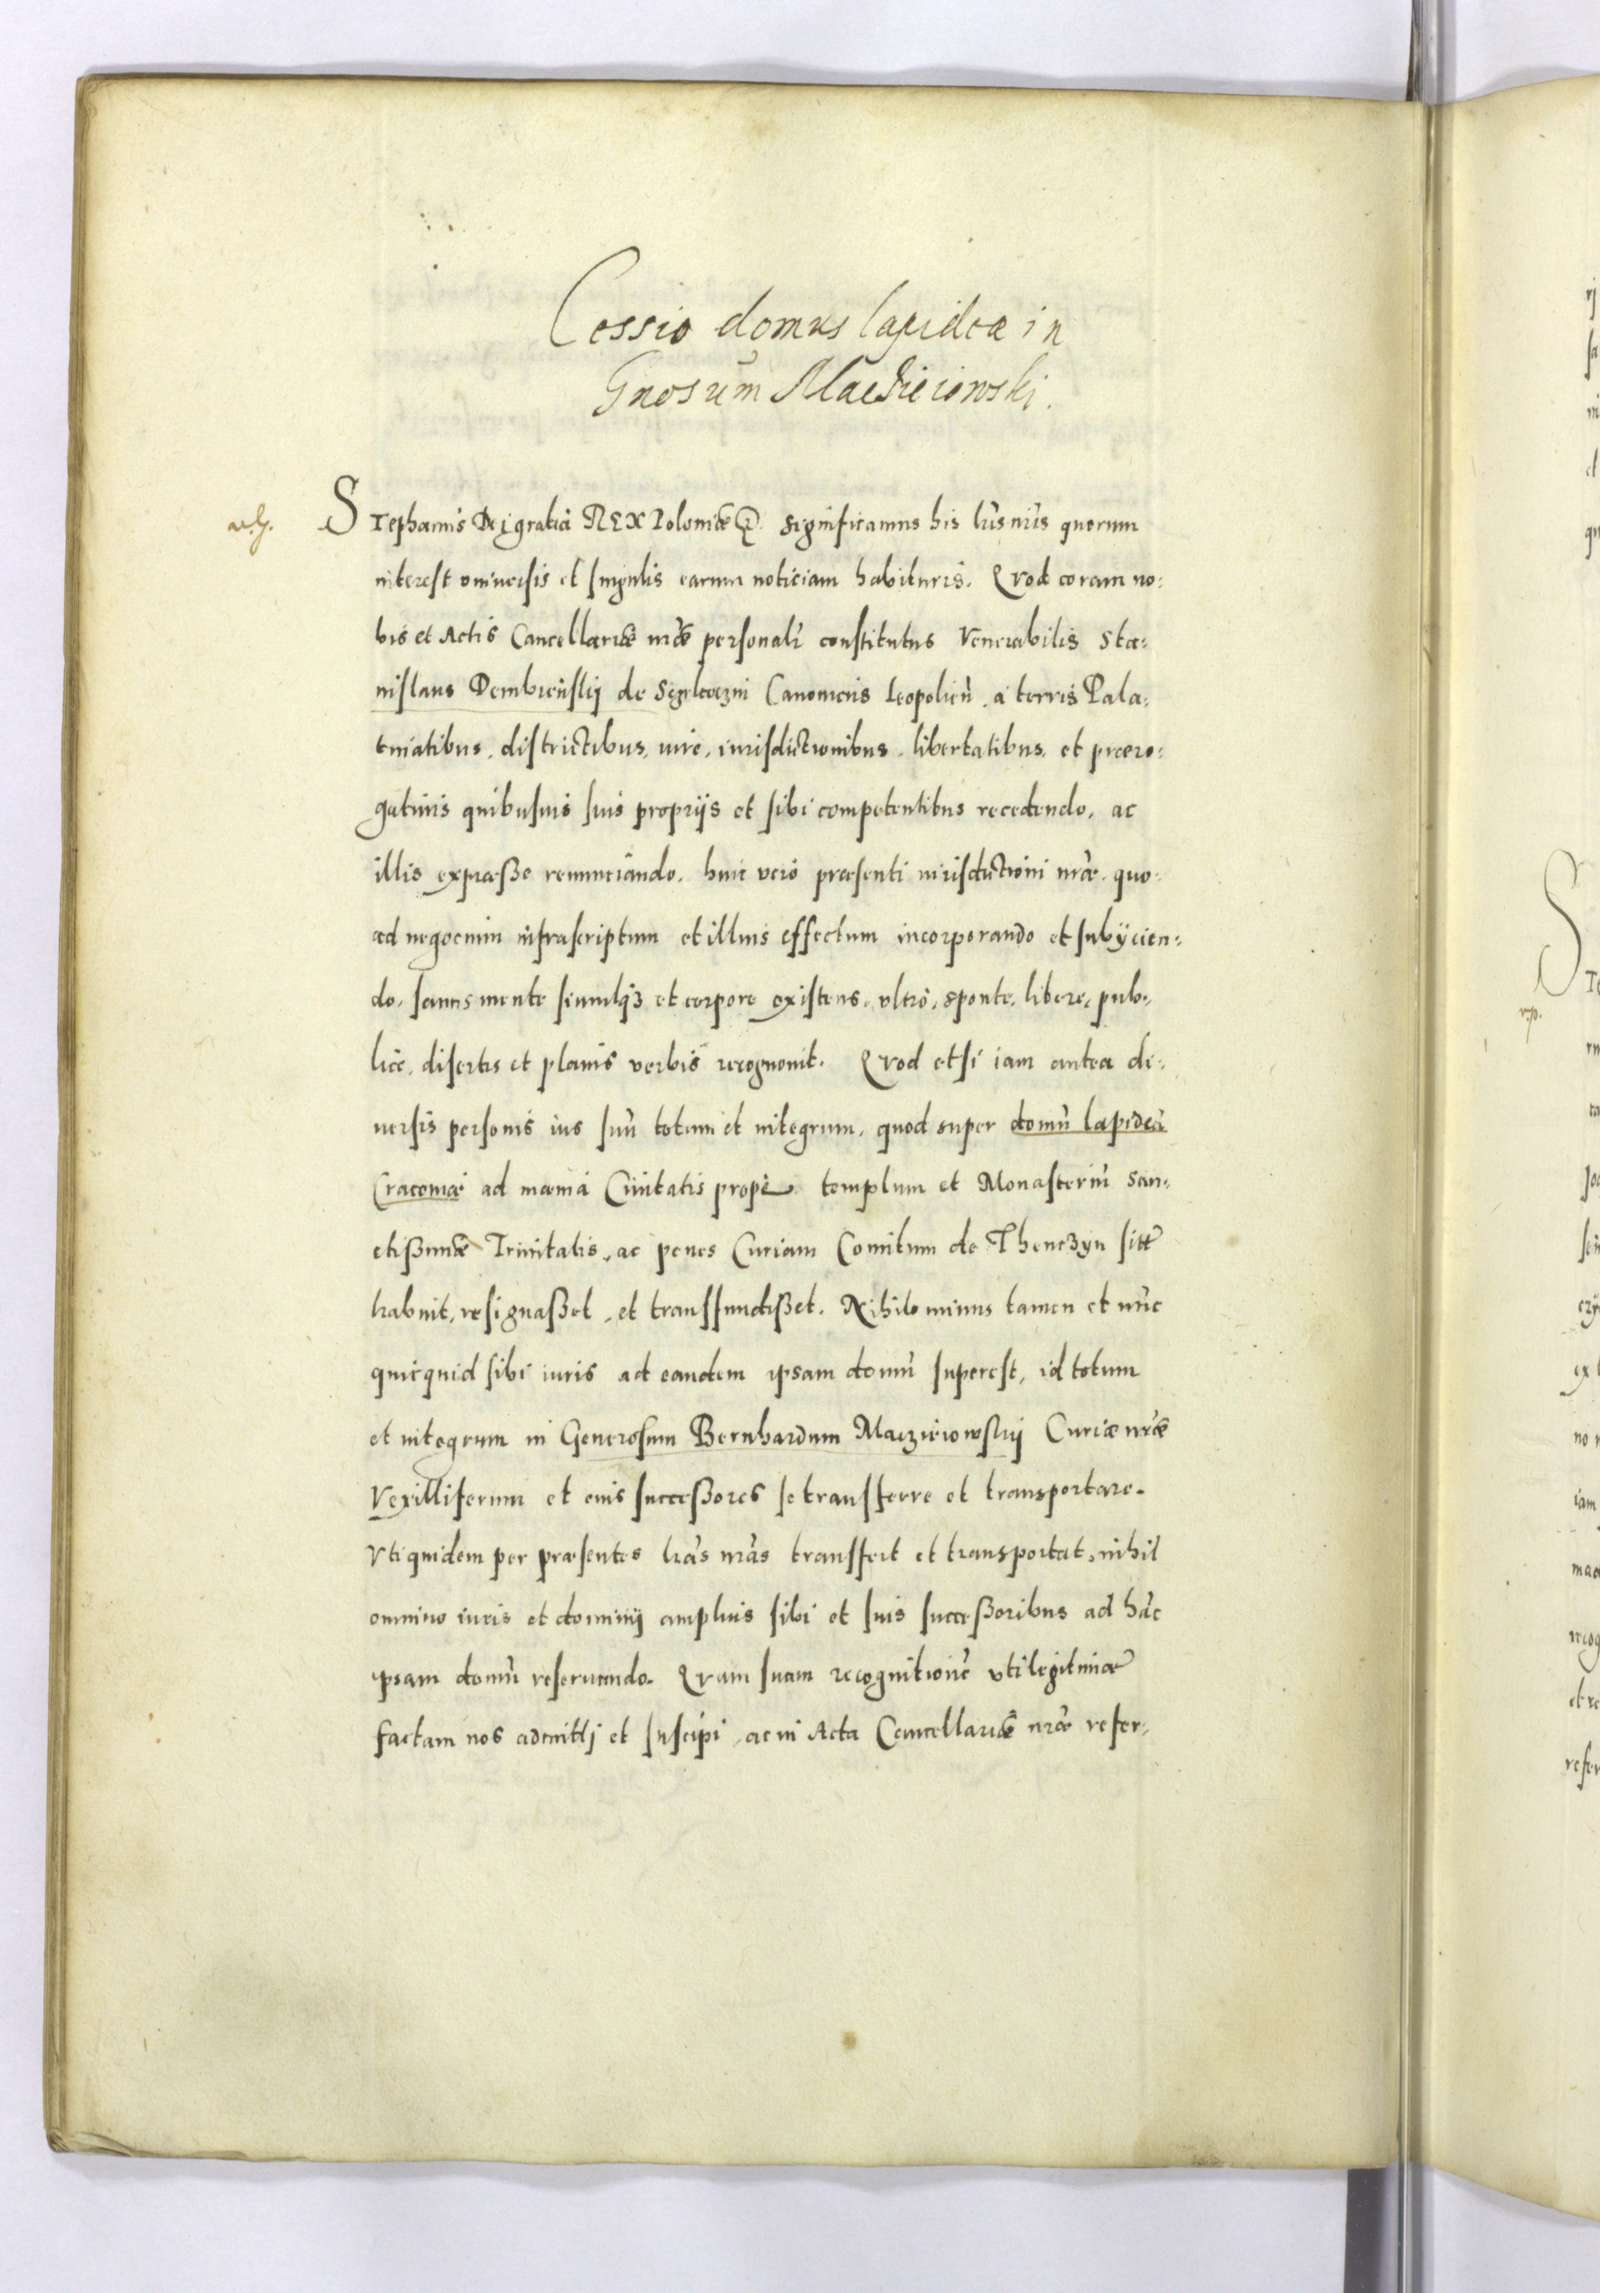 Cessio domus lapideæ in
Gnosum Macieiowski.
Stephanus Dei gratia REX Poloniæ &c. significamus his lr̃is nr̃is quorum
interest vniuersis et singulis earum noticiam habituris. Qvod coram no:
bis et Actis Cancellariæ nr̃æ personalr̃ constitutus Venerabilis Sta:
nislaus Dembieńskij de Canonicus Leopolien̄. a terris Pala:
tinatibus, districtibus, iure, iurisdictionibus, libertatibus, et præro:
gatiuis quibusuis suis proprijs et sibi competentibus recedendo, ac
illis expræsse renunciando. huic verò præsenti iurisdictioni nr̃æ. quo:
ad negocium infrascriptum et illius effectum incorporando et subijcien:
do, sanus mente simulq3 et corpore existens, vltrò, sponte, libere, pub:
licè, disertis et planis verbis recognouit. Qvod etsi iam antea di:
uersis personis ius suū totum et integrum, quod super domū lapideā
Cracouiæ ad mænia Ciuitatis propè templum et Monasteriū San:
ctissimæ Trinitatis, ac penes Curiam Comitum de Thenczyn sitā
habuit, resignasset, et transfundisset. Nihilominus tamen et nūc
quicquid sibi iuris ad eandem ipsam domū superest, id totum
et integrum in Generosum Bernhardum Maczieiowskij Curiæ nr̃æ
Vexilliferum et eius successores se transferre et transportare.
Vti quidem per præsentes lr̃as nr̃as transfert et transportat, nihil
omnino iuris et dominij amplius sibi et suis successoribus ad hāc
ipsam domū reseruando. Qvam suam recognitionē vti legitimæ
factam nos admitti et suscipi, ac in Acta Cancellariæ nr̃æ refer: